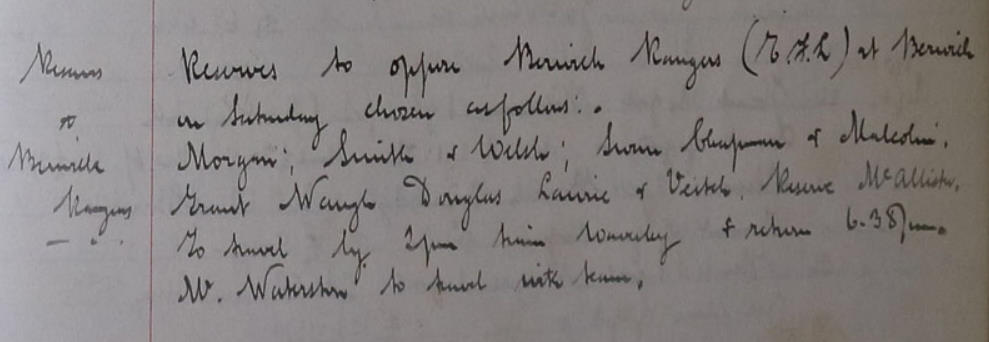 Reserves
v
Berwick
Rangers
Reserves to oppose Berwick Rangers (E.F.L) at Berwick
on Saturday chosen as follows:.
Morgan; Smith & Welsh; Swan Chapman & Malcolm.
Grant Waugh Douglas Lawrie & Veitch. Reserve McAllister.
To travel by 2pm train Waverley & return 6.38pm.
Mr. Waterston to travel with team.